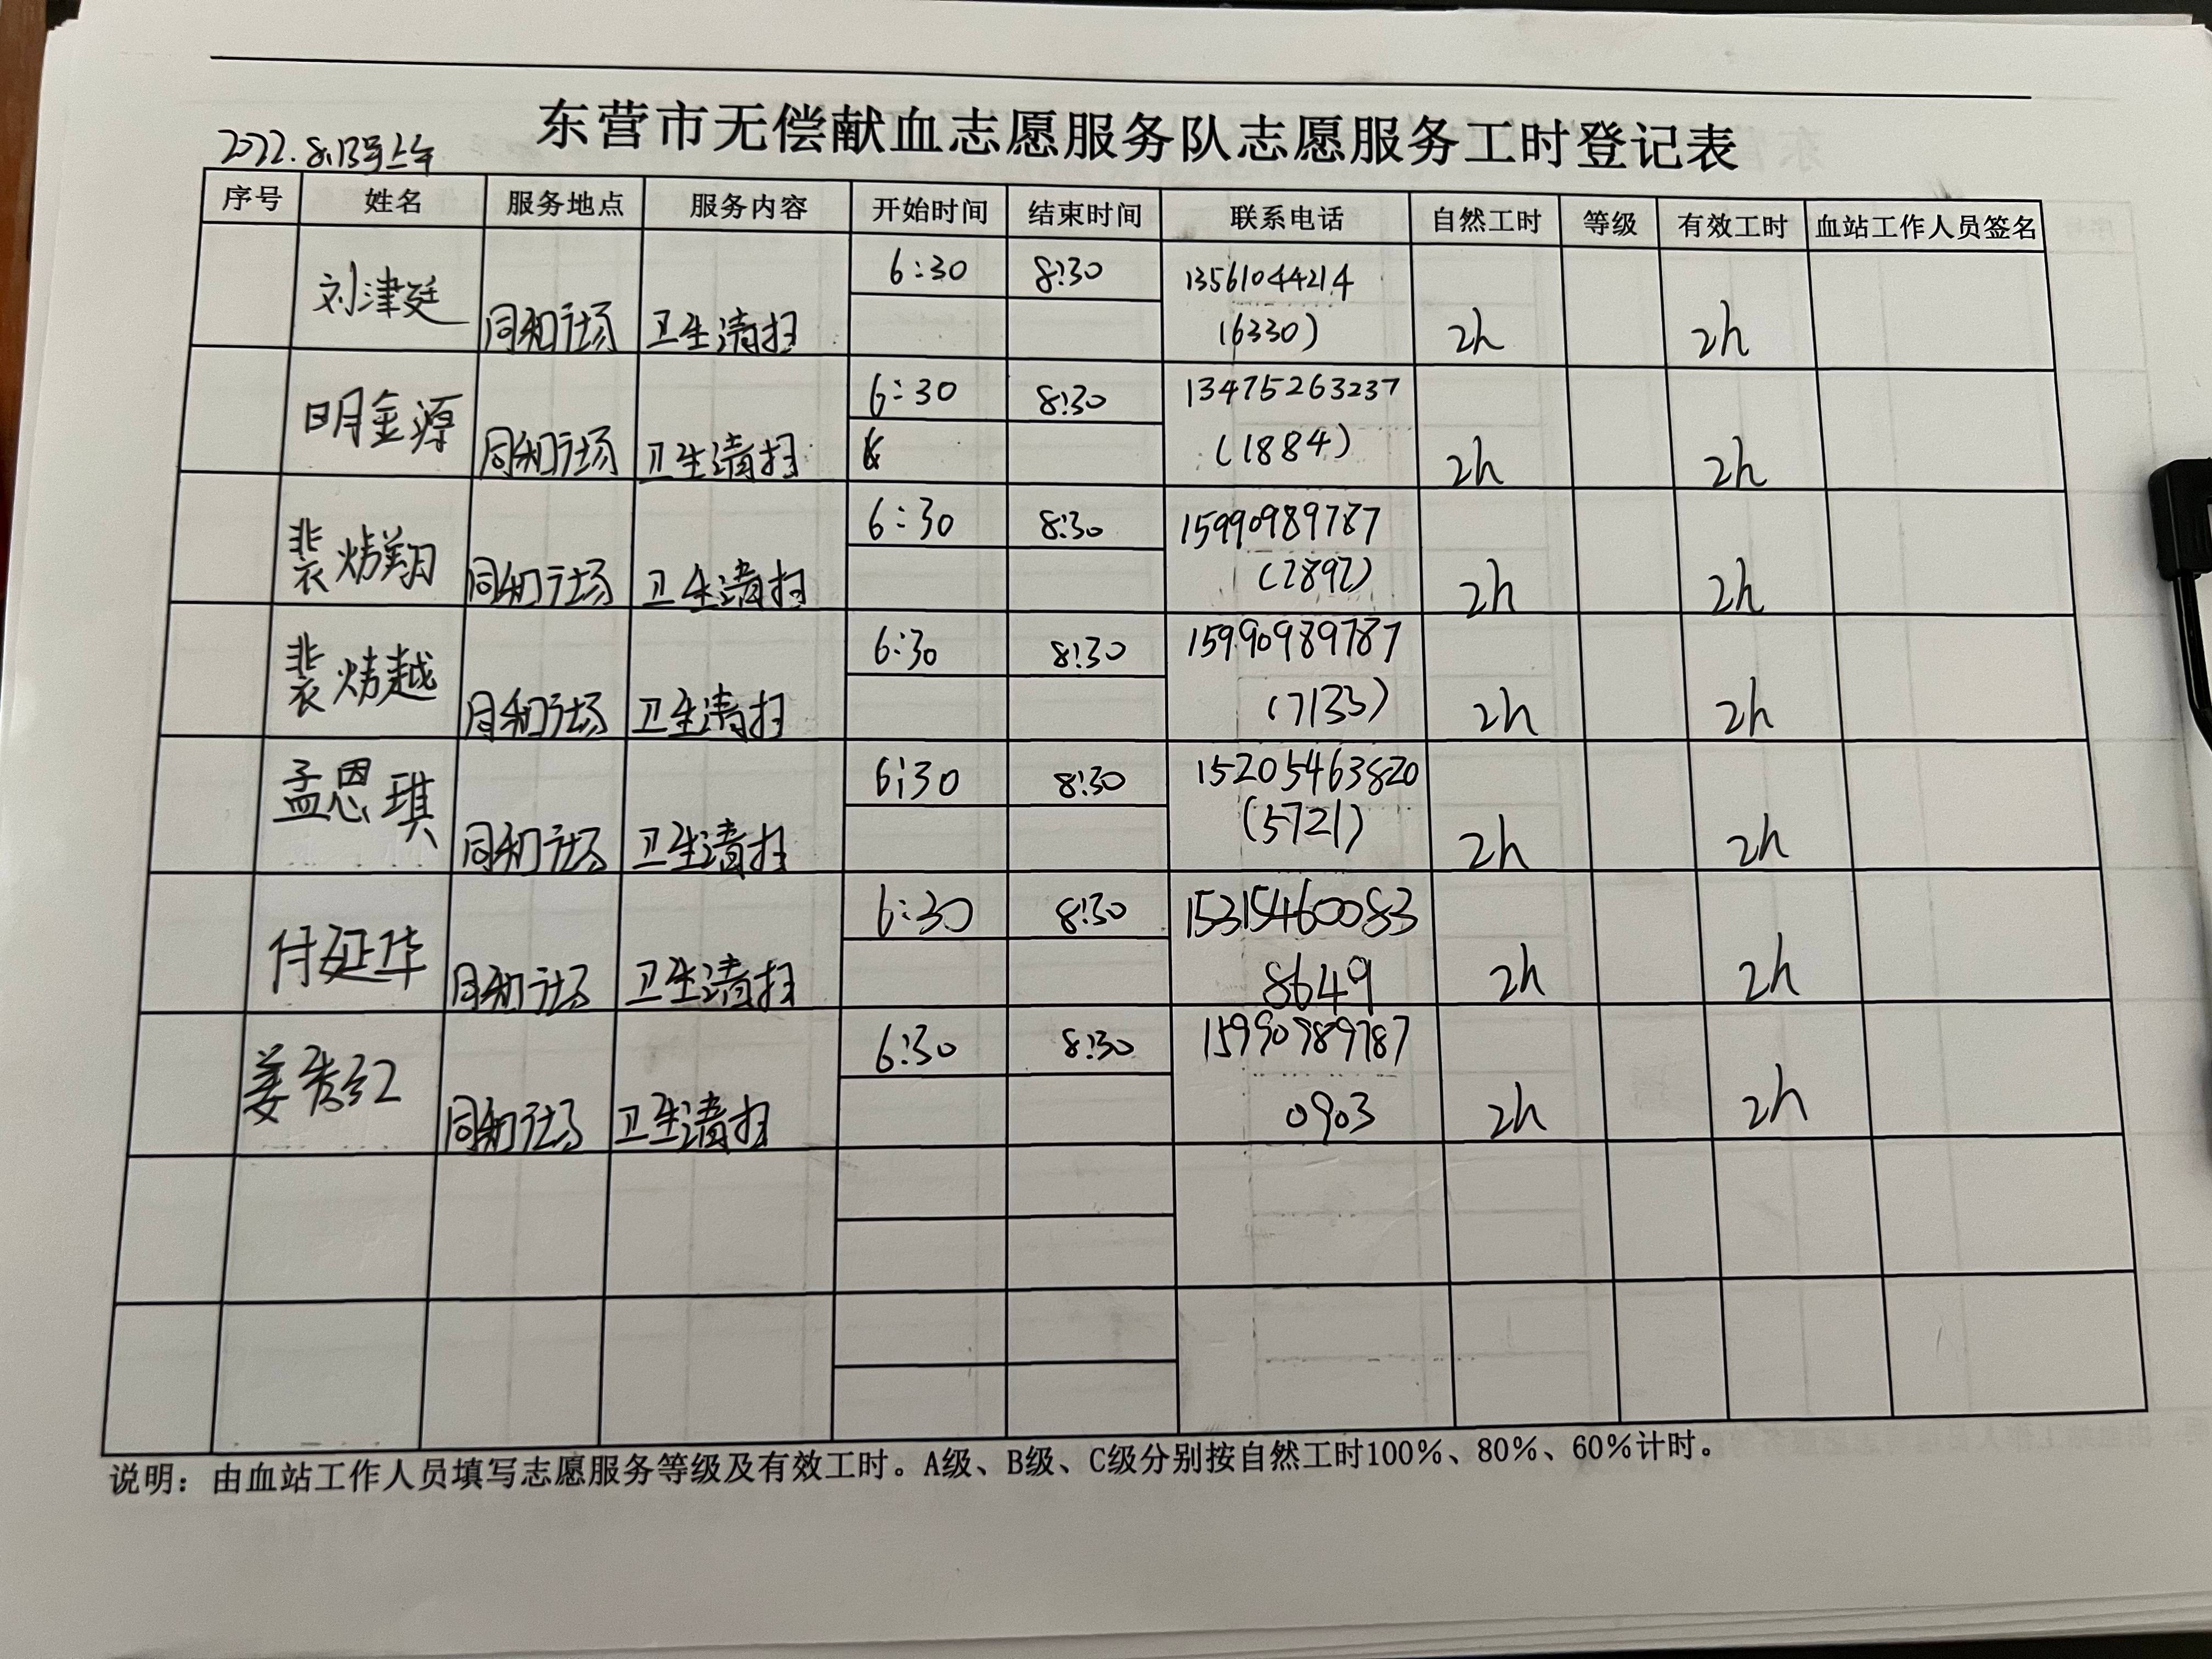 东营市无偿献血志愿服务队志愿服务工时登记表
2022.8.13号上午
序号 姓名 服务地点 服务内容 开始时间 结束时间 联系电话 自然工时 等级 有效工时 血站工作人员签名
刘津廷 同和市场 卫生清扫 6:30 8:30 13561044214 2h 2h
(6330)
明金源 同和市场 卫生清扫 6:30 8:30 13475263237 2h 2h
(1884)
裴炜翔 同和市场 卫生清扫 6:30 8:30 15990989787 2h 2h
(2892)
裴炜越 同和市场 卫生清扫 6:30 8:30 15990989787 2h 2h
(7133)
孟恩琪 同和市场 卫生清扫 6:30 8:30 15205463820 2h 2h
(5721)
付延华 同和市场 卫生清扫 6:30 8:30 15315460083 2h 2h
8649
姜秀红 同和市场 卫生清扫 6:30 8:30 15990989787 2h 2h
0903
说明：由血站工作人员填写志愿服务等级及有效工时。A级、B级、C级分别按自然工时100%、80%、60%计时。